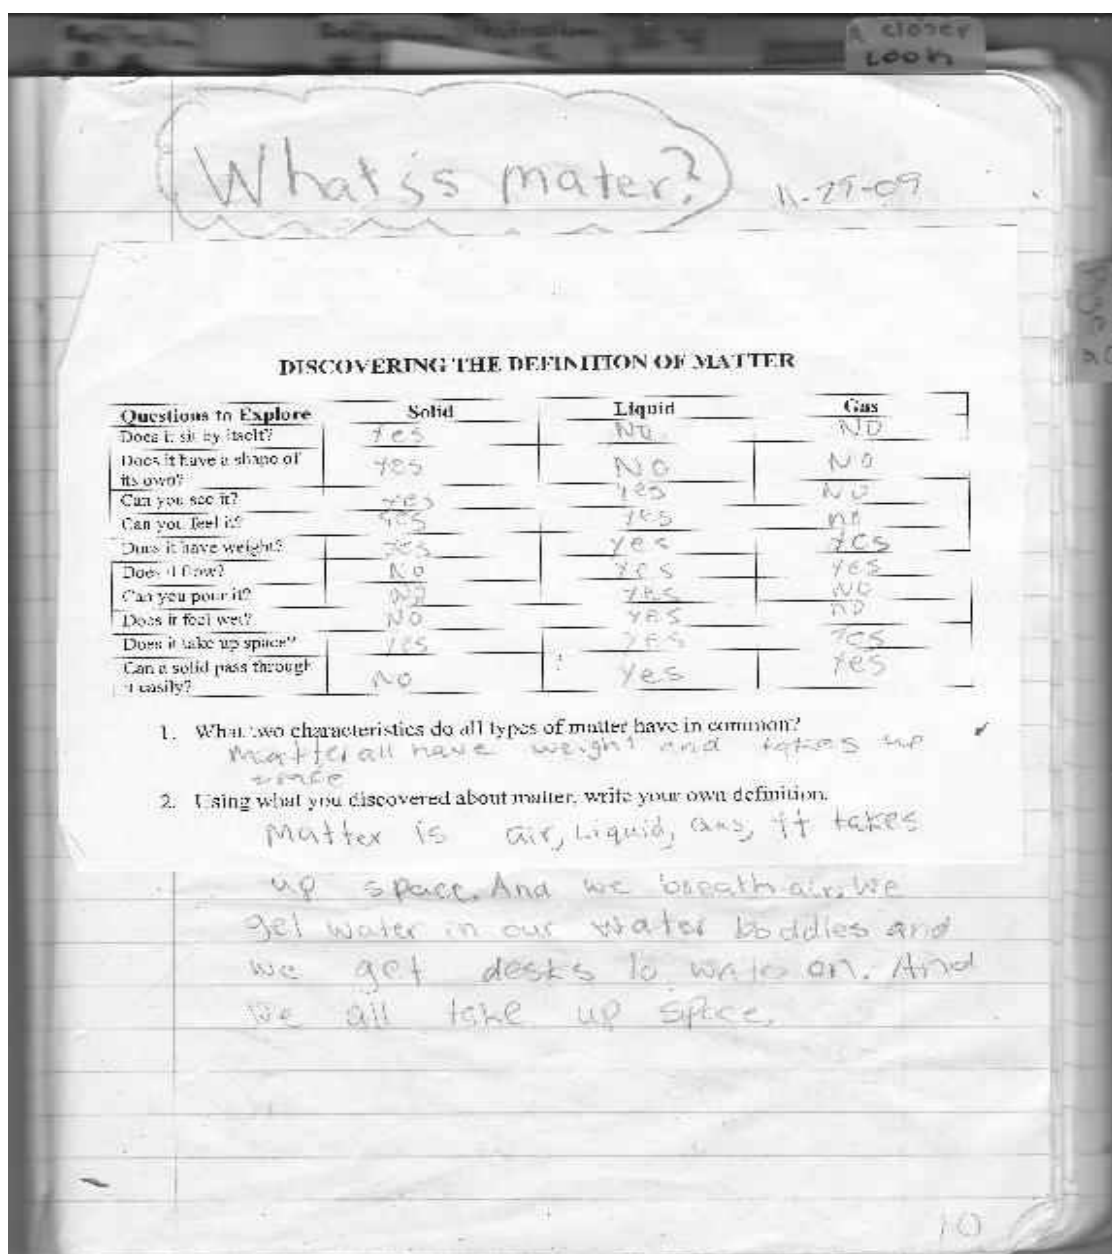 A closer
Look
What is mater?
11-29-09
DISCOVERING THE DEFINITION OF MATTER
Questions to Explore Solid Liquid Gas
Does it sit by itself? Yes No NO
Does it have a shape of
its own? yes NO NO
Can you see it? yes yes NO
Can you feel it? yes yes no
Does it have weight? yes yes yes
Does it flow? NO yes yes
Can you pour it? NO yes NO
Does it feel wet? NO yes no
Does it take up space? yes yes yes
Can a solid pass through
it easily? NO Yes yes
1. What two characteristics do all types of matter have in common?
Matter all have weight and takes up
space
2. Using what you discovered about matter, write your own definition.
Matter is air, Liquid, gas, it takes
up space. And we breath air. We
get water in our water boddies and
we get desks to write on. And
we all take up space.
10